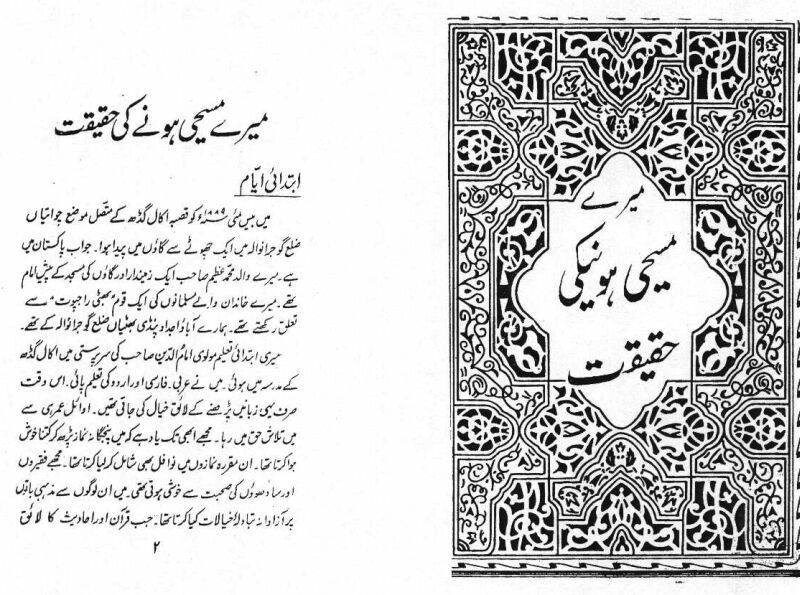 میرے
مسیحی ہونیکی
حقیقت
میرے مسیحی ہونے کی حقیقت
ابتدائی ایام
میں بیس مئی ۱۸۸۹ء کو قصبہ اکال گڈھ کے متصل موضع جوانیاں
ضلع گوجرانوالہ میں ایک چھوٹے سے گاؤں میں پیدا ہوا۔ جواب پاکستان میں
ہے۔ میرے والد محمد عظیم صاحب ایک زمیندار اور گاؤں کی مسجد کے پیش امام
تھے۔ میرے خاندان والے مسلمانوں کی ایک قوم "بھٹی راجپوت" سے
تعلق رکھتے تھے۔ ہمارے آباؤ اجداد پنڈی بھٹیاں ضلع گوجرانوالہ کے تھے۔
میری ابتدائی تعلیم مولوی امام الدین صاحب کی سرپرستی میں اکال گڈھ
کے مدرسہ میں ہوئی۔ میں نے عربی۔ فارسی اور اردو کی تعلیم پائی۔ اس وقت
صرف یہی زبانیں پڑھنے کے لائق خیال کی جاتی تھیں۔ اوائل عمر ہی سے
میں تلاش حق میں رہا۔ مجھے ابھی تک یاد ہے کہ میں پنجگانہ نماز پڑھ کر کتنا خوش
ہوا کرتا تھا۔ ان مقررہ نمازوں میں نوافل بھی شامل کر لیا کرتا تھا۔ مجھے فقیروں
اور سادھوؤں کی صحبت سے خوشی ہوتی تھی۔ میں ان لوگوں سے مذہبی باتوں
پر آزادانہ تبادلۂ خیالات کیا کرتا تھا۔ جب قرآن اور احادیث کا لائق
۲